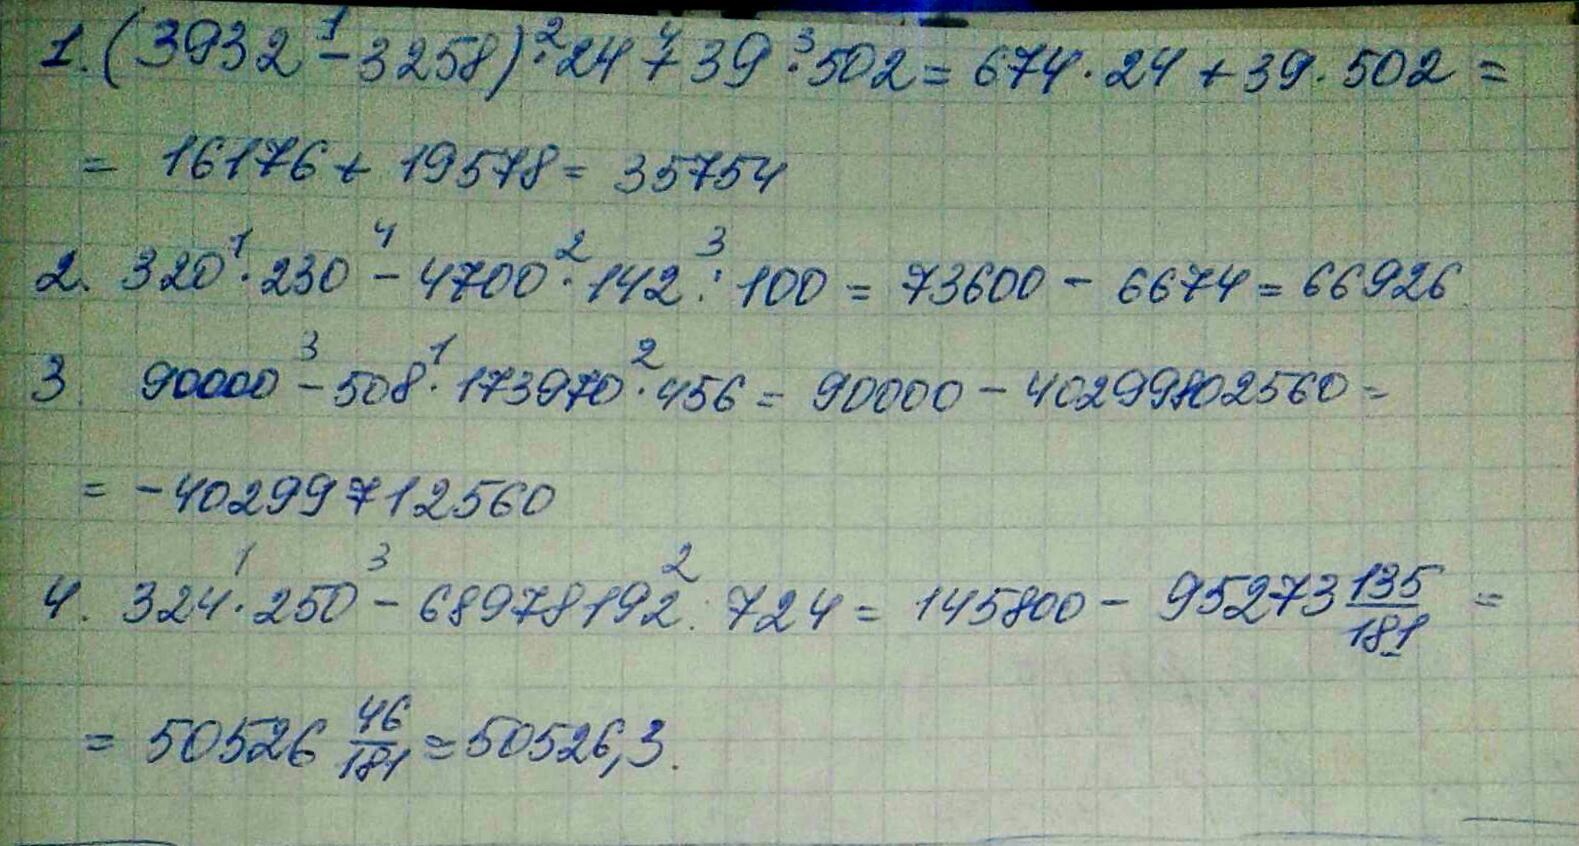 1. (3932 - 3258) · 24 + 39 · 502 = 674 · 24 + 39 · 502 =
= 16176 + 19578 = 35754
2. 320 · 230 - 4700 · 142 : 100 = 73600 - 6674 = 66926
3. 90000 - 508 · 173970 · 456 = 90000 - 40299802560 =
= -40299712560
4. 324 · 250 - 68978192 : 724 = 145800 - 95273 135/181 =
= 50526 46/181 = 50526,3.